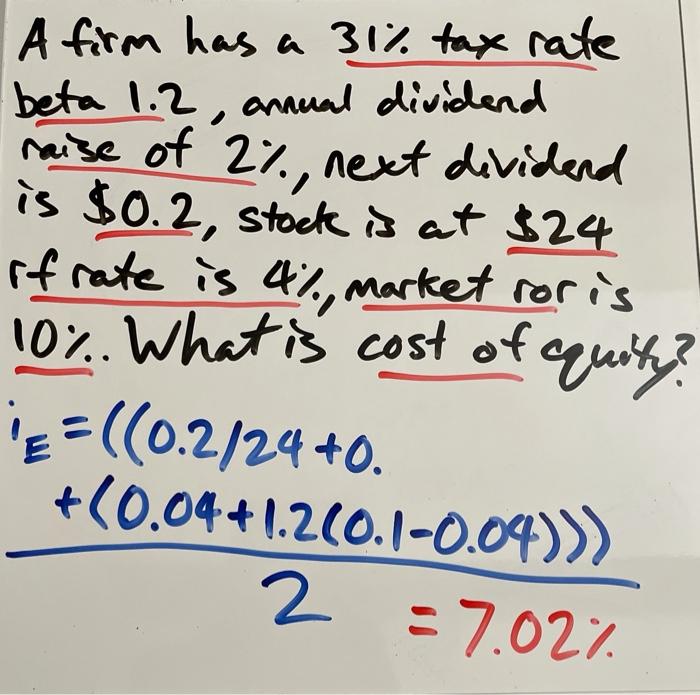 A firm has a 31% tax rate
beta 1.2, annual dividend
raise of 2%, next dividend
is $0.2, stock is at $24
rf rate is 4%, market ror is
10%. What is cost of equity?
iE = ((0.2/24 + 0.
+(0.04+1.2(0.1-0.04)))
2
= 7.02%